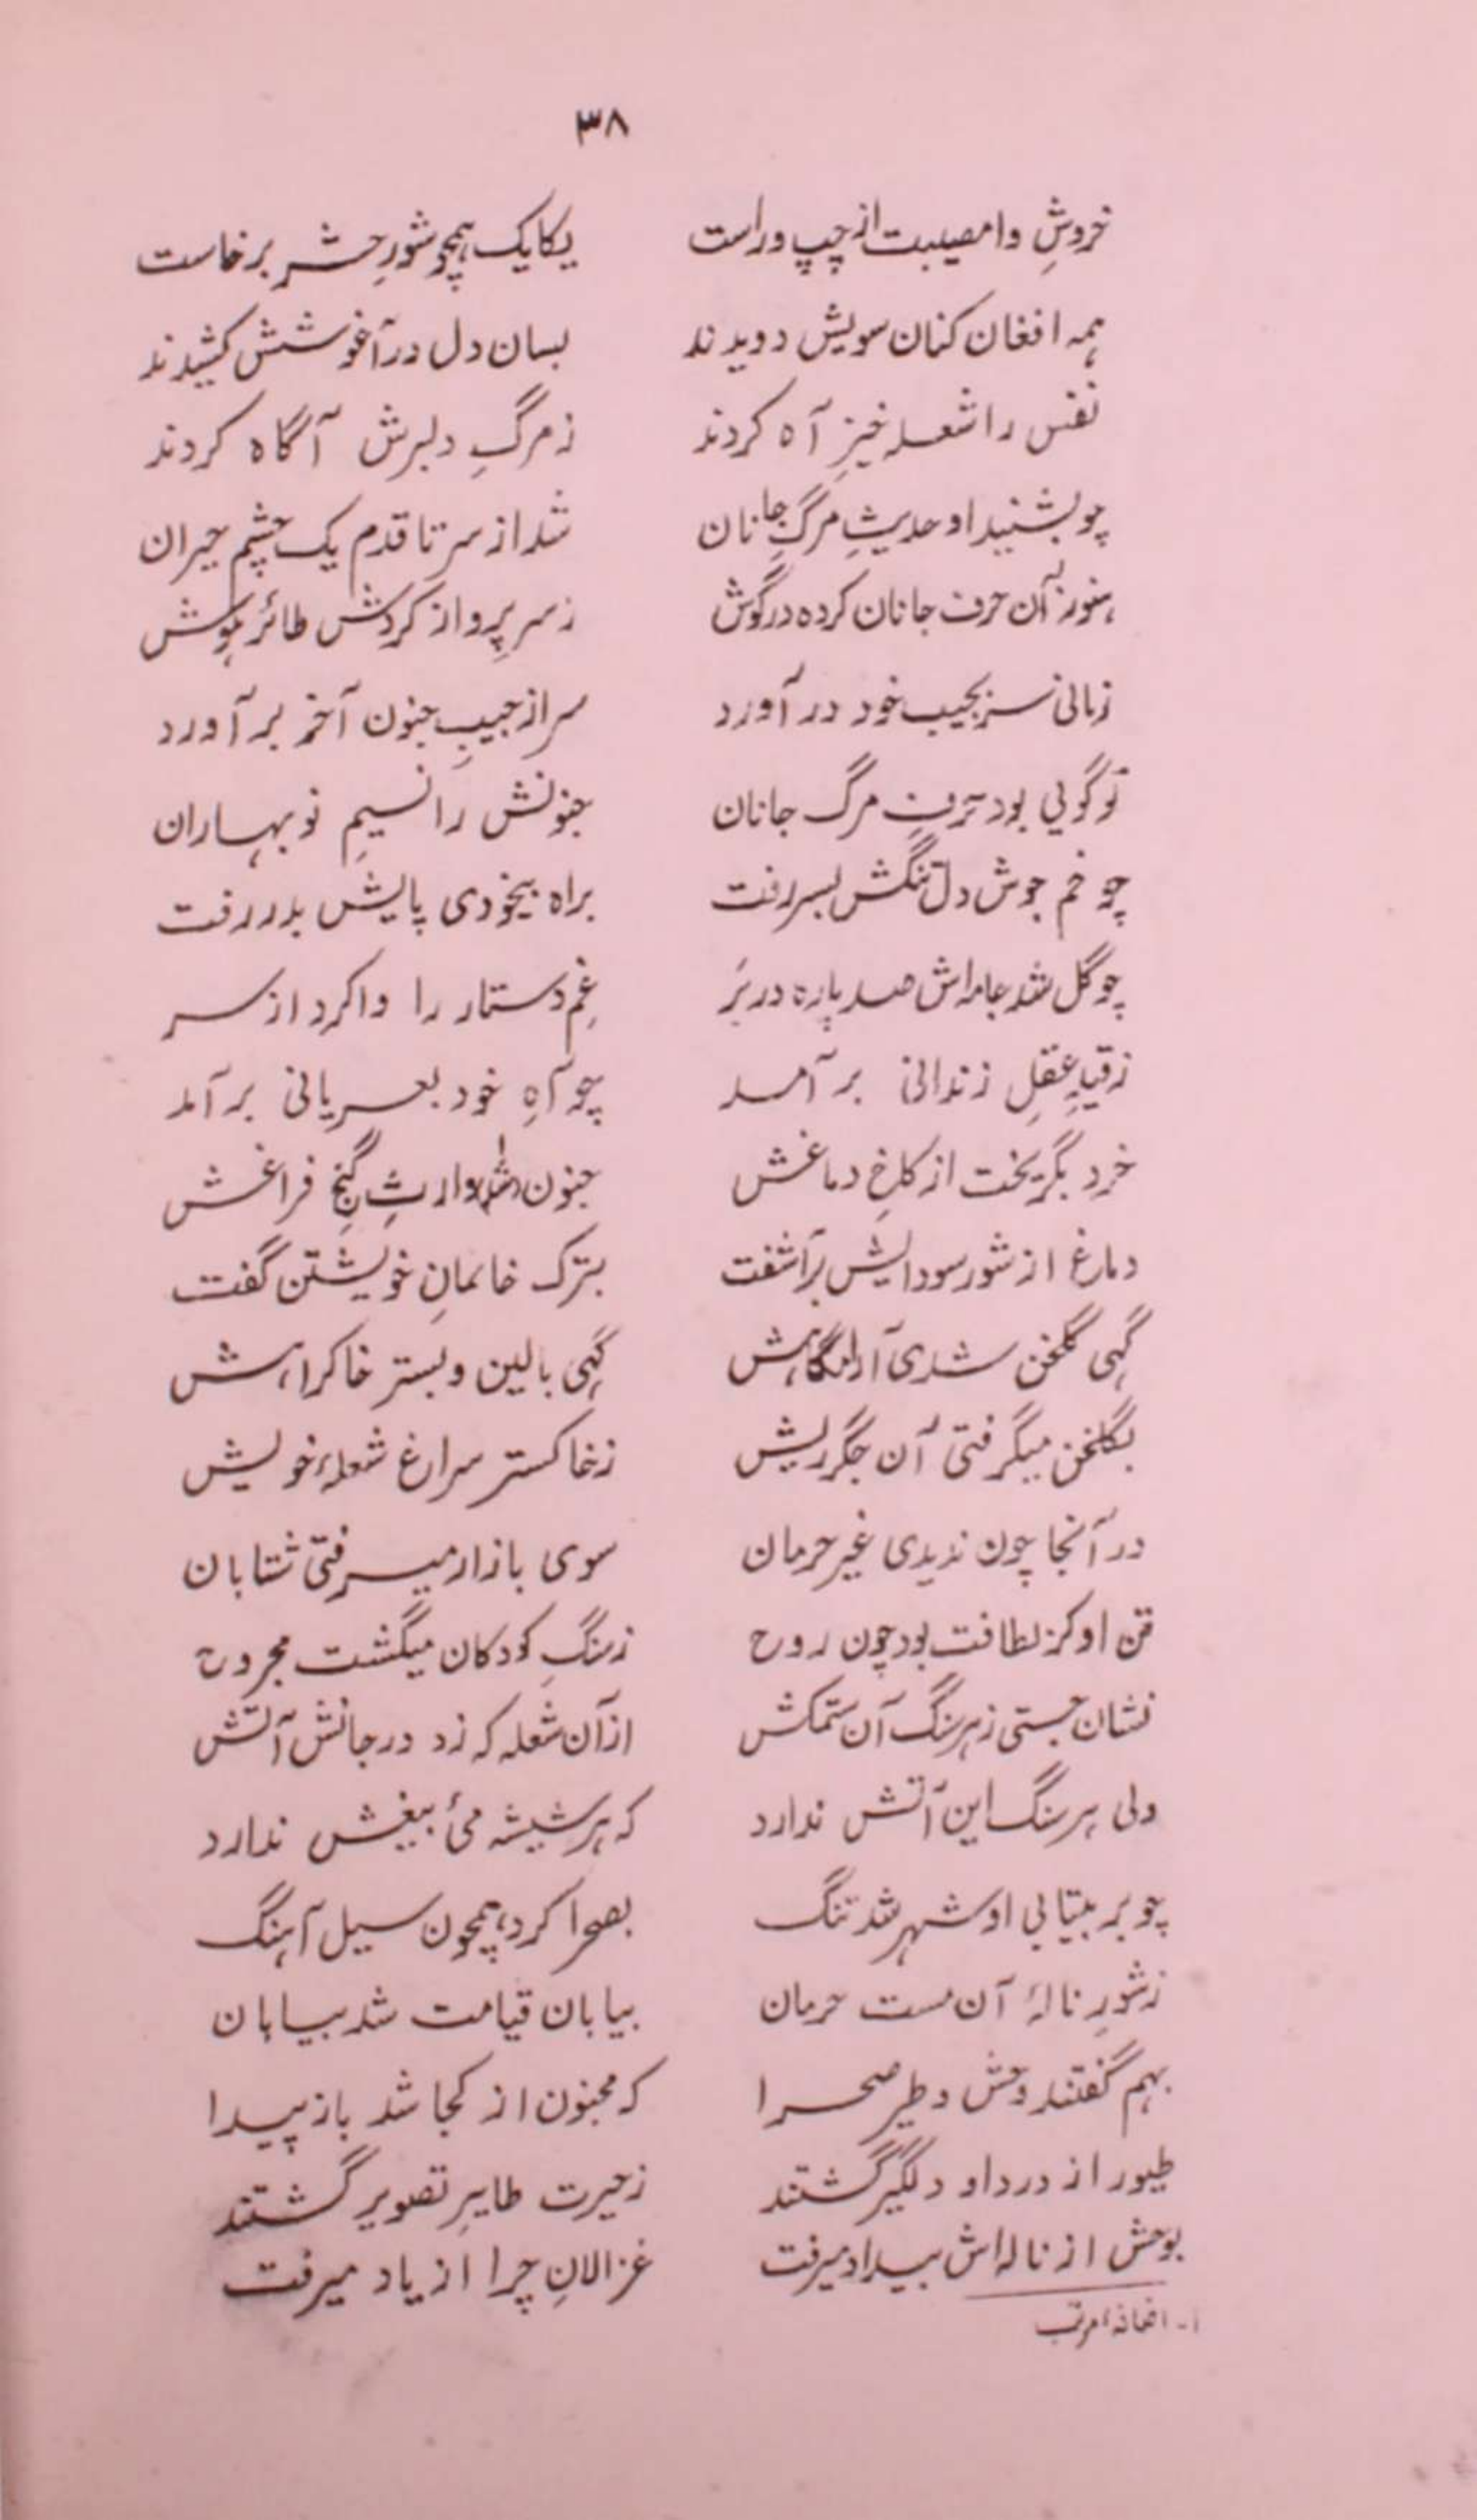 ۳۸
خروشِ وا مصیبت از چپ و راست یکایک همچو شورِ حشر برخاست
همه افغان کنان سویش دویدند بسان دل در آغوشش کشیدند
نفس را شعله خیزِ آه کردند ز مرگِ دلبرش آگاه کردند
چو بشنید او حدیثِ مرگِ جانان شد از سر تا قدم یک چشم حیران
هنوز آن حرف جانان کرده در گوش ز سر پرواز کردش طائر هوش
زمانی سر بجیب خود در آورد سر از جیبِ جنون آخر بر آورد
تو گویی بود حرفِ مرگ جانان جنونش را نسیمِ نوبهاران
چو خم جوش دل تنگش بسر رفت براه بیخودی پایش بدر رفت
چو گل شد جامه‌اش صد پاره در بَر غمِ دستار را وا کرد از سر
ز قیدِ عقلِ زندانی بر آمد چو آهِ خود بعریانی بر آمد
خرد بگریخت از کاخِ دماغش جنون (شد) وارثِ گنجِ فراغش
دماغ از شور سودایش برآشفت بترک خانمانِ خویشتن گفت
گهی گلخن شدی آرامگاهش گهی بالین و بستر خاک راهش
بگلخن میگرفتی آن جگر ریش ز خاکستر سراغ شعلهٔ خویش
در آنجا چون ندیدی غیر حرمان سوی بازار میرفتی شتابان
تن او کز لطافت بود چون روح ز سنگِ کودکان میگشت مجروح
نشان جستی ز هر سنگ آن ستمکش از آن شعله که زد در جانش آتش
ولی هر سنگ این آتش ندارد که هر شیشه مئ بیغش ندارد
چو بر بیتابی او شهر شد تنگ بصحرا کرد همچون سیل آهنگ
ز شورِ نالهٔ آن مست حرمان بیابان قیامت شد بیابان
بهم گفتند وحش و طیر صحرا که مجنون از کجا شد باز پیدا
طیور از درد او دلگیر گشتند ز حیرت طایرِ تصویر گشتند
بوحش از ناله‌اش بیداد میرفت غزالان چرا از یاد میرفت
۱- اضافهٔ مرتب